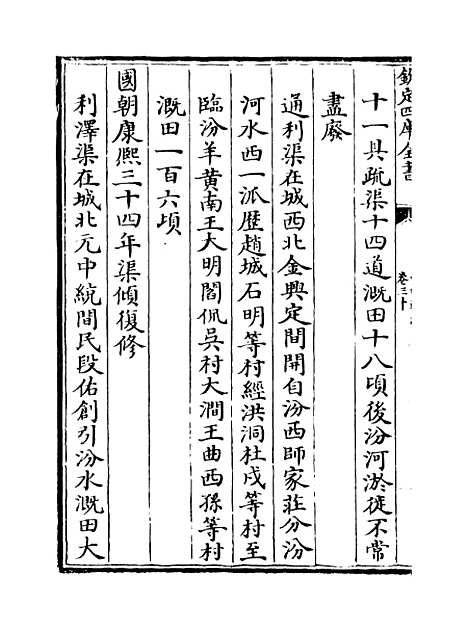 欽定四庫全書
卷三十
十一具疏渠十四道溉田十八頃後汾河淤徙不常
盡廢
通利渠在城西北金興定間開自汾西師家莊分汾
河水西一派歷趙城石明等村經洪洞杜戍等村至
臨汾羊黃南王大明閻侃吳村大澗王曲西孫等村
溉田一百六頃
國朝康熙三十四年渠傾復修
利澤渠在城北元中統間民段佑創引汾水溉田大